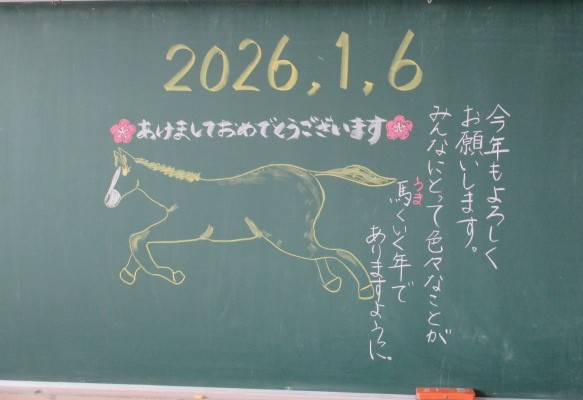 2026,1,6
あけましておめでとうございます
今年もよろしく
お願いします。
みんなにとって色々なことが
馬くいく年で
うま
ありますように。